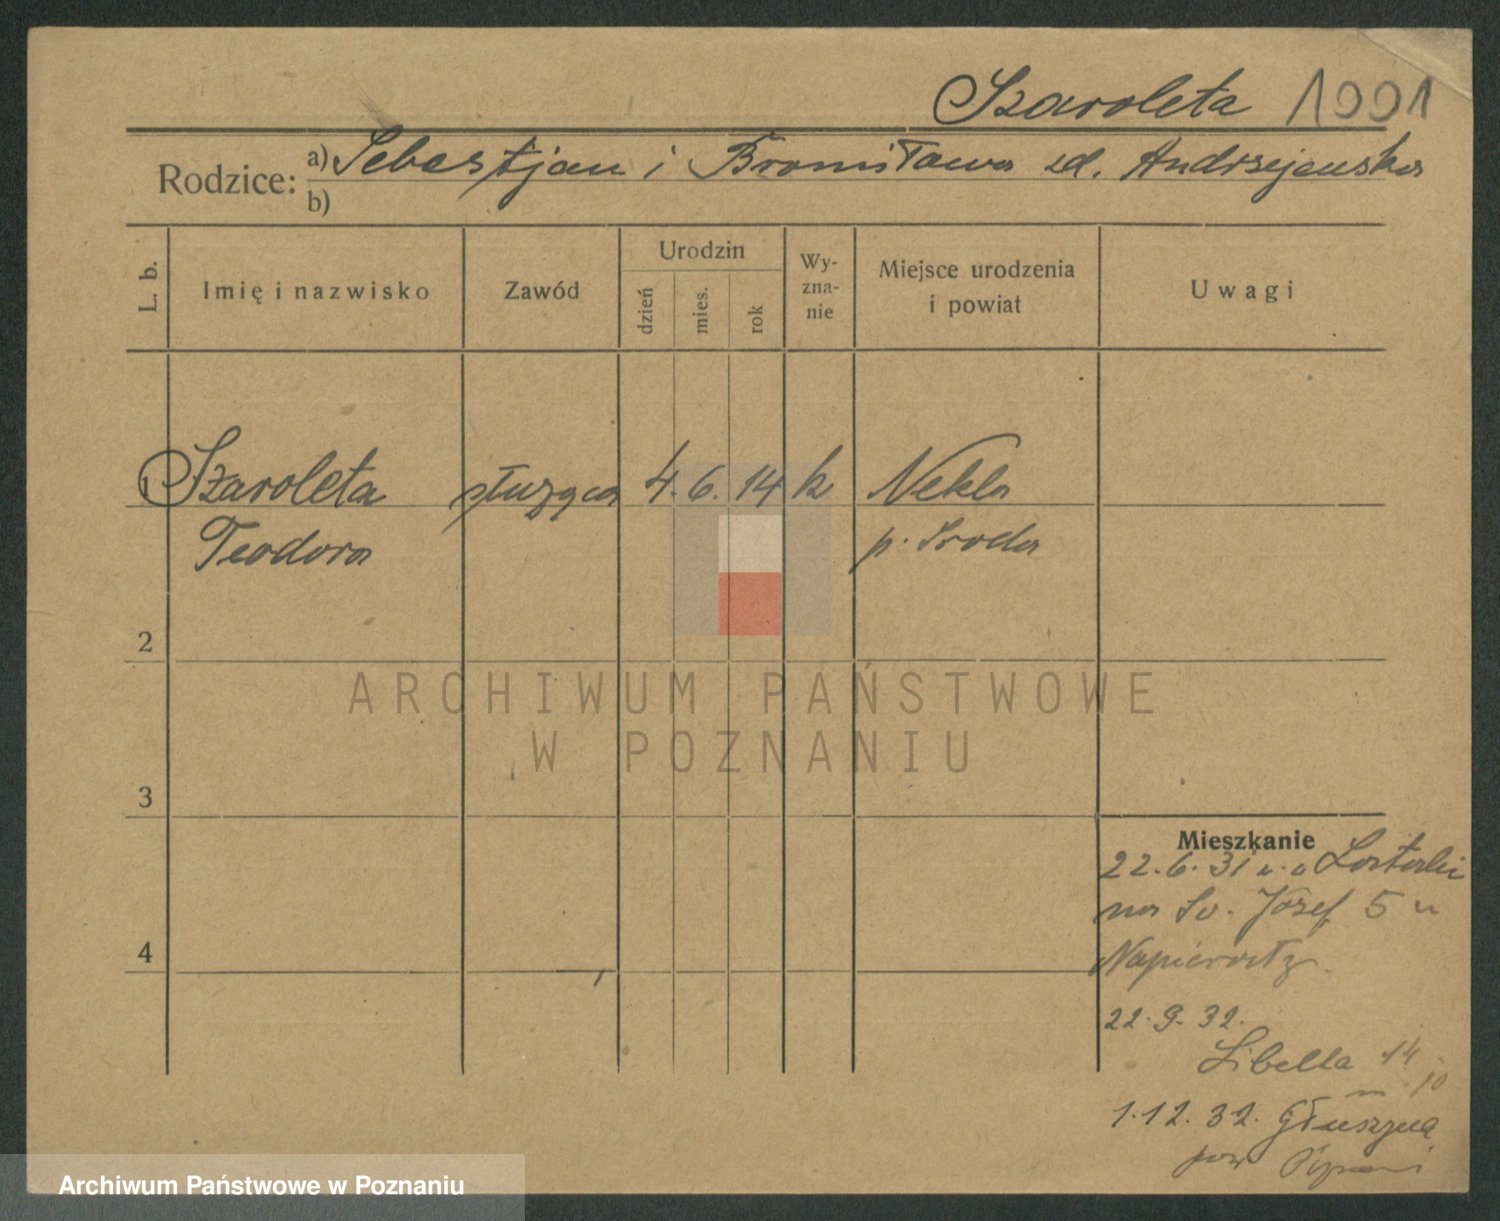 Szaroleta 1991
Rodzice: a) Sebastjan i Bronisława zd. Andrzejewska
b)
L. b. Imię i nazwisko Zawód Urodzin dzień mies. rok Wy-zna-nie Miejsce urodzenia i powiat Uwagi
1 Szaroleta służąca 4. 6. 14 k Nekla
Teodora p. Środa
2
ARCHIWUM PAŃSTWOWE
W POZNANIU
3
Mieszkanie
22.6.31
na Św. Józef 5 u
4
22.9.32.
Libelta 14
m. 10
1.12.32. Głuszyna
pow
Archiwum Państwowe w Poznaniu